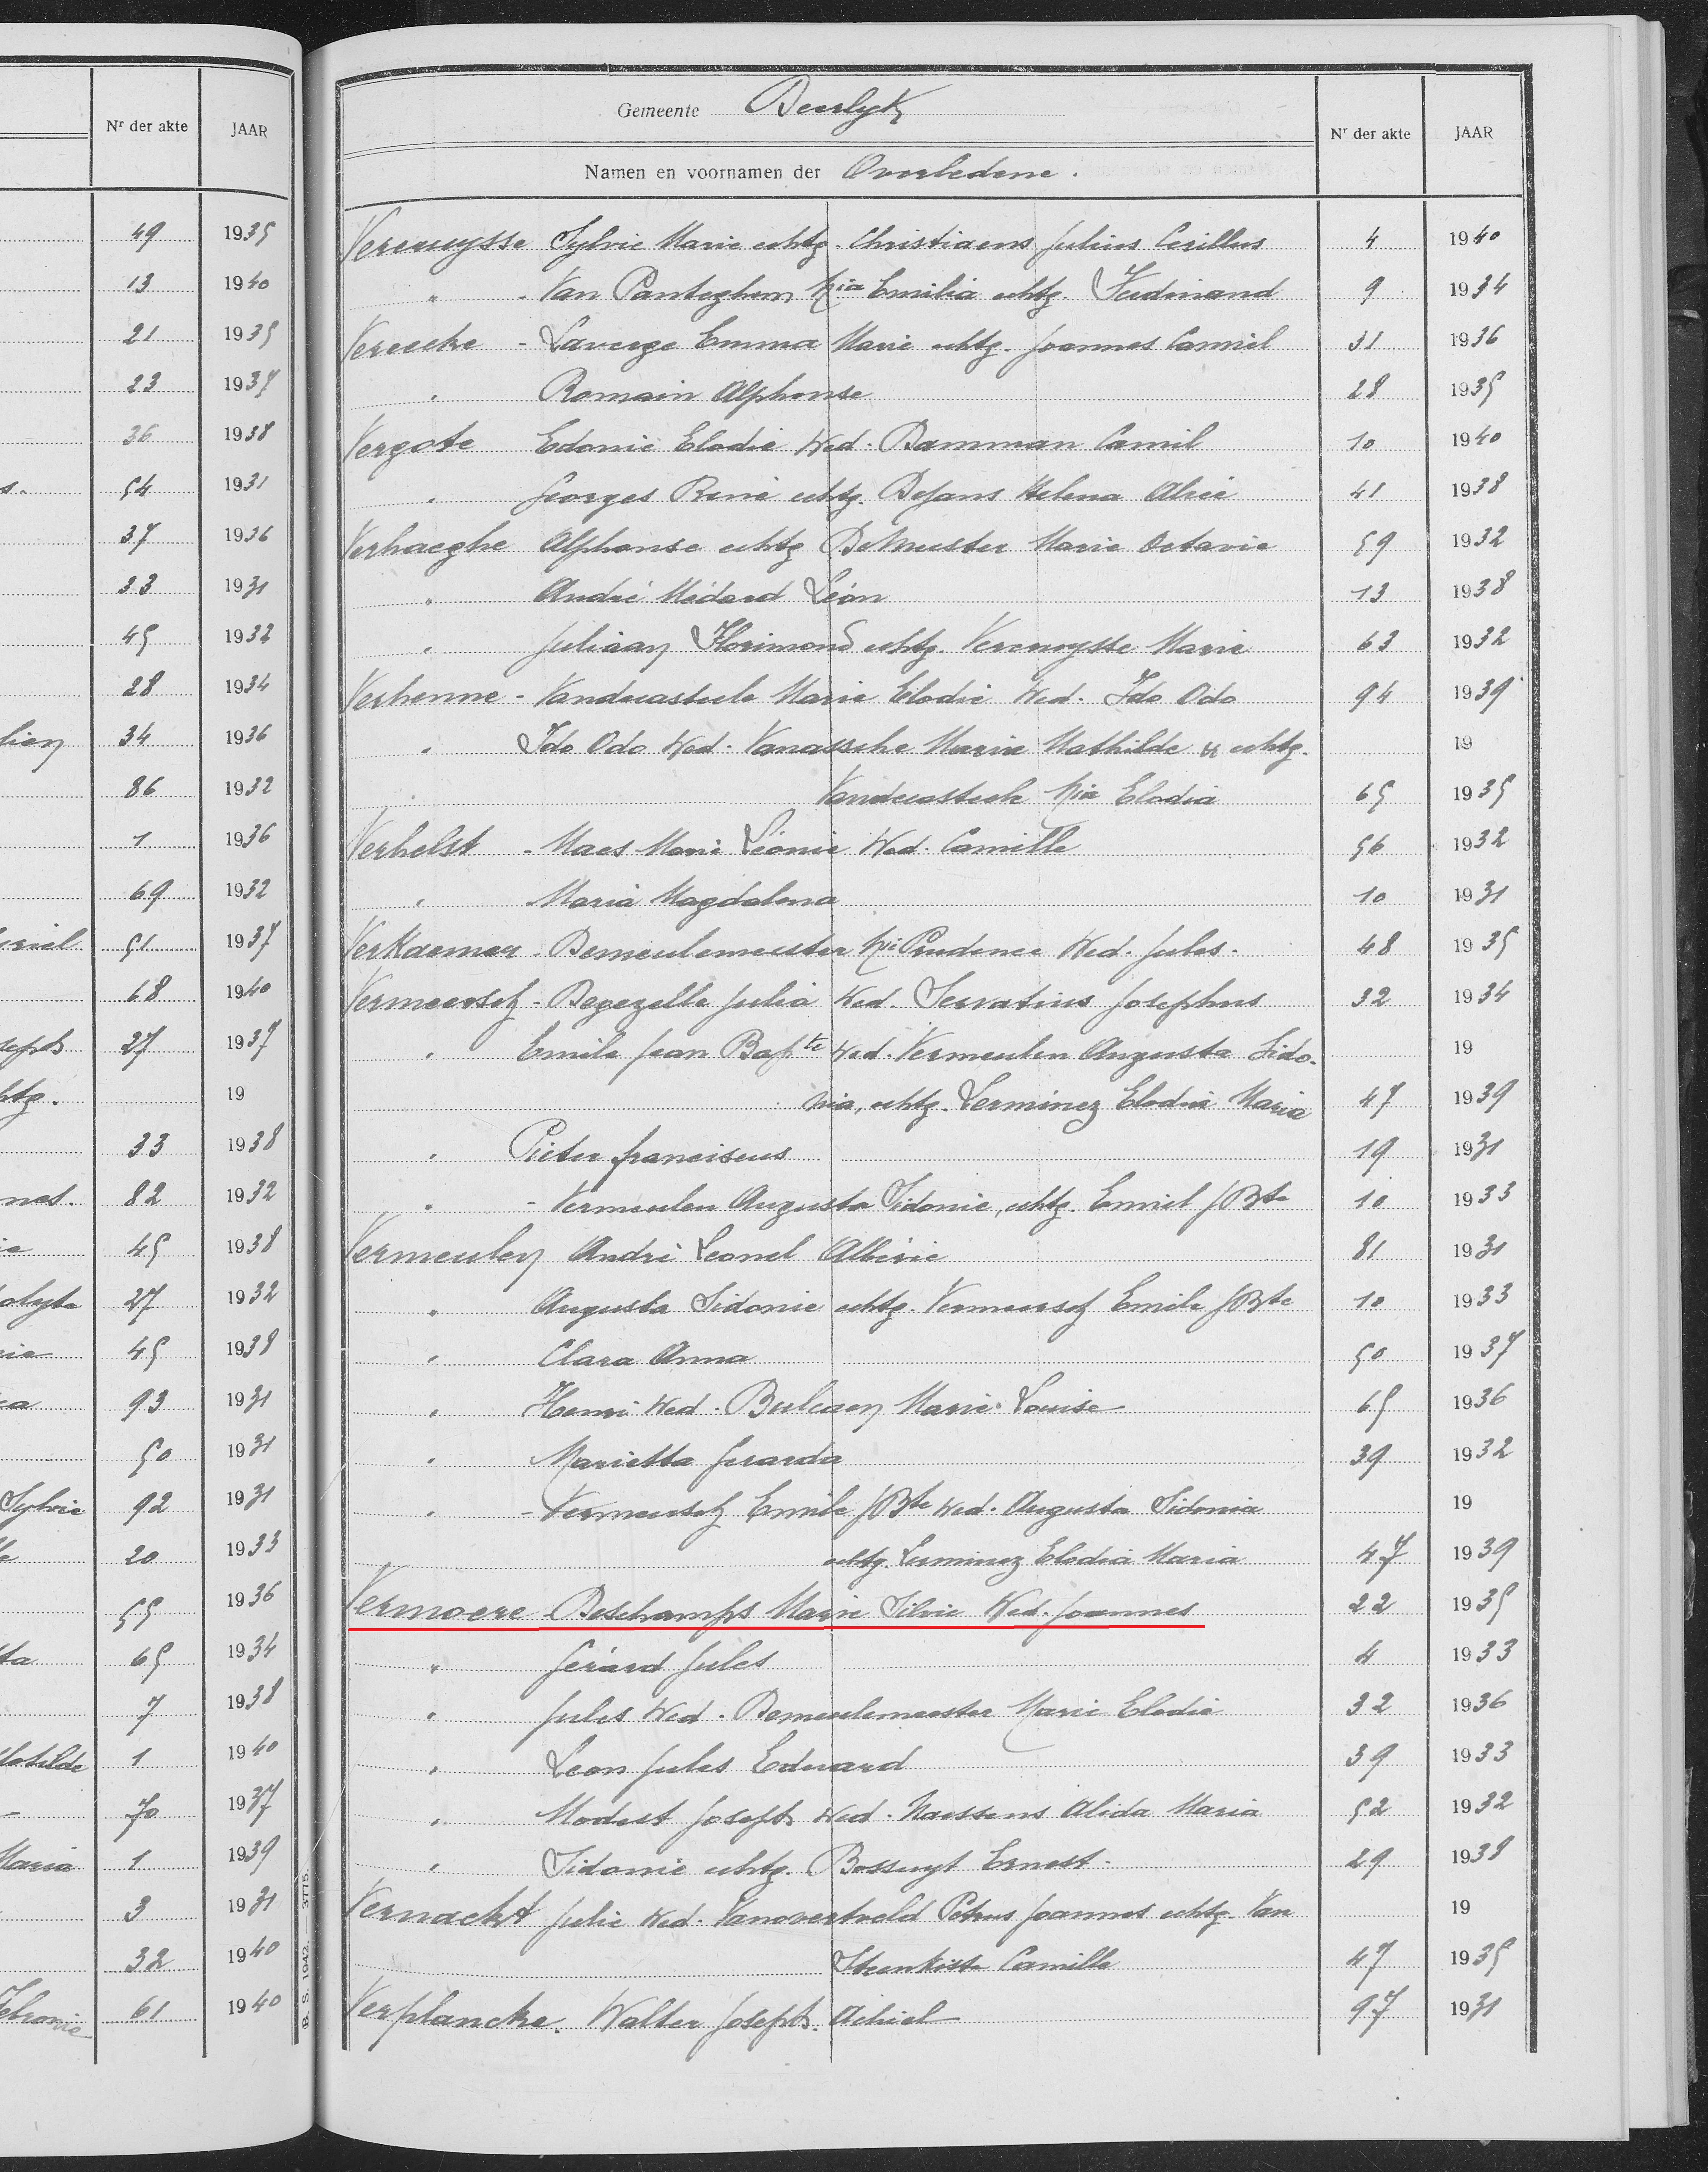 Nr der akte JAAR
49 1935
13 1940
21 1935
23 1937
36 1938
s. 54 1931
37 1936
33 1931
45 1932
28 1934
lien 34 1936
86 1932
1 1936
69 1932
51 1937
68 1940
seph 27 1937
htg. 19
33 1938
nes. 82 1932
ie 45 1938
olyte 27 1932
rie 45 1938
ca 93 1931
50 1931
Sylvie 92 1931
20 1933
55 1936
ta 65 1934
7 1938
lotilde 1 1940
70 1937
Maria 1 1939
3 1931
32 1940
61 1940
B. S. 1942. — 3775.
Gemeente Deerlyk
Nr der akte JAAR
Namen en voornamen der Overledene.
Vercruysse Sylvie Marie echtg. Christiaens Julius Cirillus 4 1940
" - Van Panteghem Mia Emilia echtg. Ferdinand 9 1934
Vereecke - Laverge Emma Marie echtg. Joannes Camiel 31 1936
" Romain Alphonse 28 1935
Vergote Edonie Elodie Wed. Damman Camil 10 1940
" Georges René echtg. Dejans Helena Alice 41 1938
Verhaeghe Alphonse echtg DeMeester Marie Octavie 59 1932
" André Médard Léon 13 1938
" Juliaan Florimond echtg. Vercruysse Marie 63 1932
Verhenne - Vandecasteele Marie Elodie Wed. Ido Odo 94 1939
" Ido Odo Wed. Vanassche Maria Mathilde & echtg. 19
Vandecasteele Mia Elodia 65 1935
Verhelst - Maes Marie Léonie Wed. Camille 56 1932
" Maria Magdalena 10 1931
VerKaemer - Demeulemeester Mie Prudence Wed. Jules. 48 1935
Vermeersch - Degezelle Julia Wed. Servatius Josephus 32 1934
" Emile Jean Bapte Wed. Vermeulen Augusta Sido- 19
nia, echtg. Lerminez Elodia Maria 47 1939
" Pieter franciscus 19 1931
" - Vermeulen Augusta Sidonie, echtg. Emiel J Bte 10 1933
Vermeulen André Leonel Albéric 81 1931
" Augusta Sidonie echtg. Vermeersch Emile J Bte 10 1933
" Clara Anna 50 1937
" Henri Wed. Bulcaen Marie-Louise 65 1936
" Marietta Gerarda 39 1932
" - Vermeersch Emile J Bte Wed. Augusta Sidonia 19
echtg. Lerminez Elodia Maria 47 1939
Vermoere - Deschamps Marie Silvie Wed. Joannes 22 1935
" Gérard Jules 4 1933
" Jules Wed. Demeulemeester Marie Elodie 32 1936
" Leon Jules Edward 39 1933
" Modest Joseph Wed. Naessens Alida Maria 52 1932
" Sidonie echtg. Bossuyt Ernest. 29 1938
Vernackt Julie Wed. Vanovertveld Petrus Joannes echtg. Van 19
Steenkiste Camille 47 1935
Verplancke. Walter Joseph. Achiel 97 1931